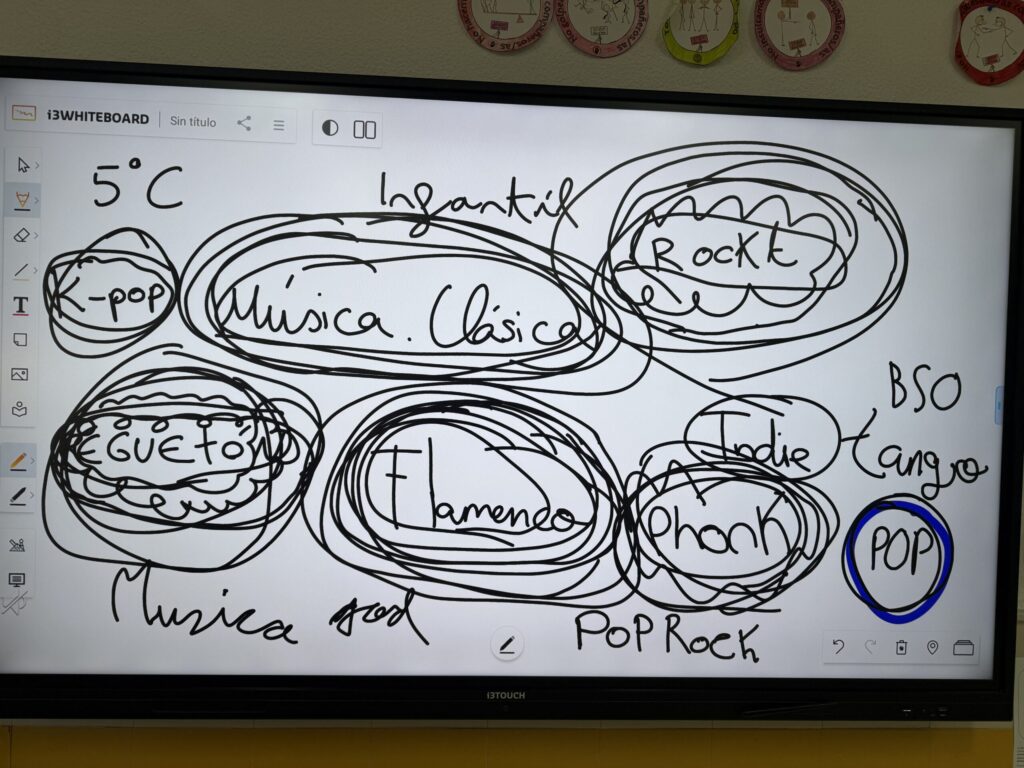 i3WHITEBOARD
Sin título
5°C
Infantil
Rockt
K-pop
Música. Clásica
BSO
EGUETÓN
Flamenco
Indie
tango
Phonk
POP
Musica
POP ROCK
i3TOUCH